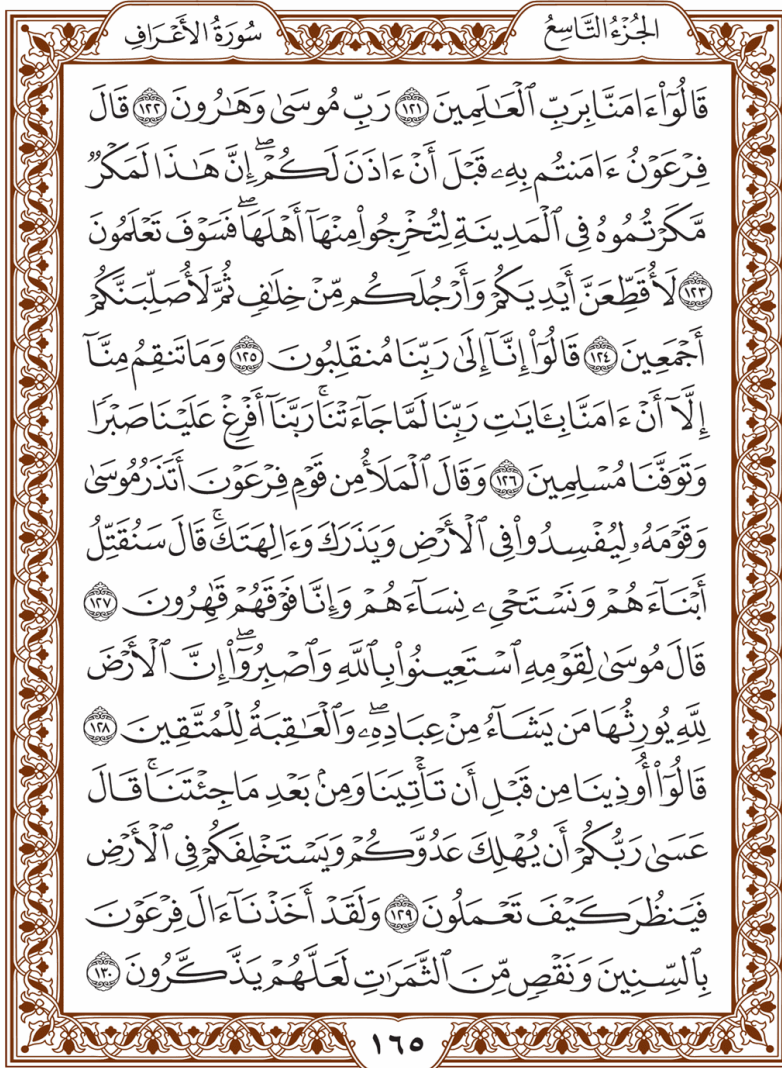 الجُزْءُ التَّاسِعُ
سُورَةُ الأَعْرَافِ
قَالُوٓاْ ءَامَنَّا بِرَبِّ ٱلْعَٰلَمِينَ ١٢١ رَبِّ مُوسَىٰ وَهَٰرُونَ ١٢٢ قَالَ
فِرْعَوْنُ ءَامَنتُم بِهِۦ قَبْلَ أَنْ ءَاذَنَ لَكُمْۖ إِنَّ هَٰذَا لَمَكْرٌ
مَّكَرْتُمُوهُ فِى ٱلْمَدِينَةِ لِتُخْرِجُواْ مِنْهَآ أَهْلَهَاۖ فَسَوْفَ تَعْلَمُونَ
١٢٣ لَأُقَطِّعَنَّ أَيْدِيَكُمْ وَأَرْجُلَكُم مِّنْ خِلَٰفٍ ثُمَّ لَأُصَلِّبَنَّكُمْ
أَجْمَعِينَ ١٢٤ قَالُوٓاْ إِنَّآ إِلَىٰ رَبِّنَا مُنقَلِبُونَ ١٢٥ وَمَا تَنقِمُ مِنَّآ
إِلَّآ أَنْ ءَامَنَّا بِـَٔايَٰتِ رَبِّنَا لَمَّا جَآءَتْنَاۚ رَبَّنَآ أَفْرِغْ عَلَيْنَا صَبْرًا
وَتَوَفَّنَا مُسْلِمِينَ ١٢٦ وَقَالَ ٱلْمَلَأُ مِن قَوْمِ فِرْعَوْنَ أَتَذَرُ مُوسَىٰ
وَقَوْمَهُۥ لِيُفْسِدُواْ فِى ٱلْأَرْضِ وَيَذَرَكَ وَءَالِهَتَكَۚ قَالَ سَنُقَتِّلُ
أَبْنَآءَهُمْ وَنَسْتَحْىِۦ نِسَآءَهُمْ وَإِنَّا فَوْقَهُمْ قَٰهِرُونَ ١٢٧
قَالَ مُوسَىٰ لِقَوْمِهِ ٱسْتَعِينُواْ بِٱللَّهِ وَٱصْبِرُوٓاْۖ إِنَّ ٱلْأَرْضَ
لِلَّهِ يُورِثُهَا مَن يَشَآءُ مِنْ عِبَادِهِۦۖ وَٱلْعَٰقِبَةُ لِلْمُتَّقِينَ ١٢٨
قَالُوٓاْ أُوذِينَا مِن قَبْلِ أَن تَأْتِيَنَا وَمِنۢ بَعْدِ مَا جِئْتَنَاۚ قَالَ
عَسَىٰ رَبُّكُمْ أَن يُهْلِكَ عَدُوَّكُمْ وَيَسْتَخْلِفَكُمْ فِى ٱلْأَرْضِ
فَيَنظُرَ كَيْفَ تَعْمَلُونَ ١٢٩ وَلَقَدْ أَخَذْنَآ ءَالَ فِرْعَوْنَ
بِٱلسِّنِينَ وَنَقْصٍ مِّنَ ٱلثَّمَرَٰتِ لَعَلَّهُمْ يَذَّكَّرُونَ ١٣٠
١٦٥